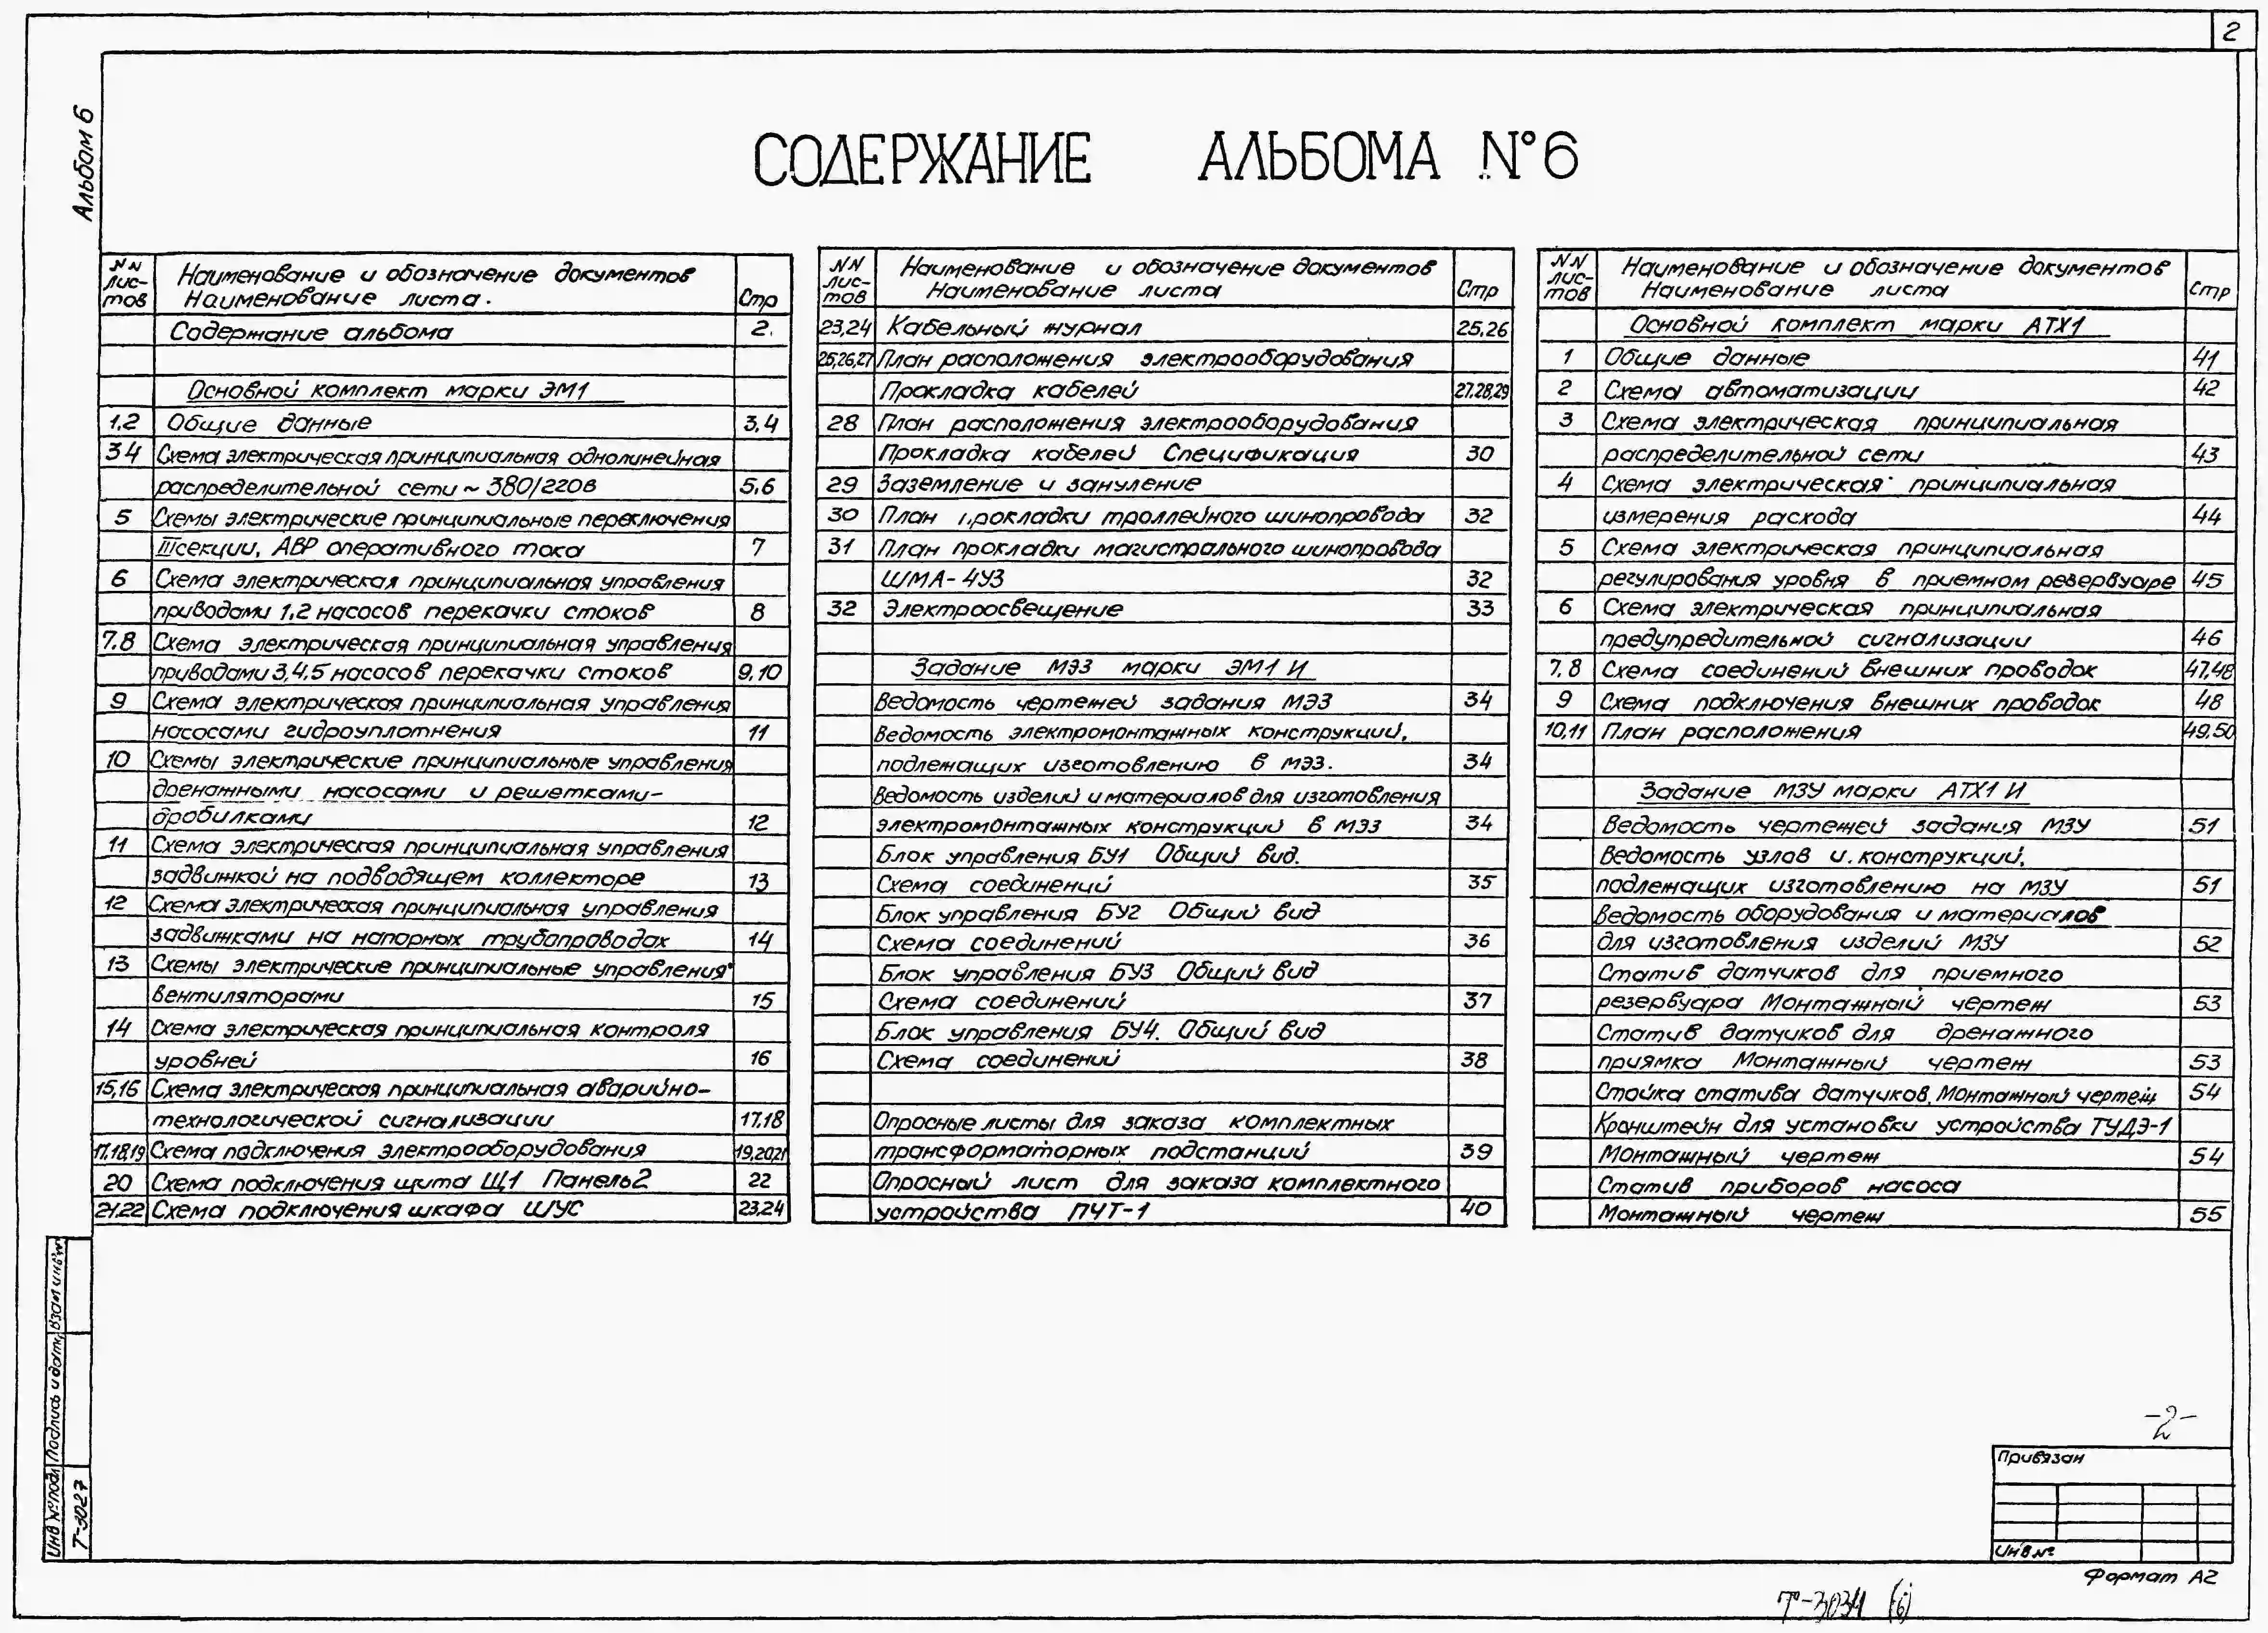 2
Альбом 6
СОДЕРЖАНИЕ АЛЬБОМА №6
NN листов Наименование и обозначение документов Наименование листа. Стр
Содержание альбома 2.
Основной комплект марки ЭМ1
1,2 Общие данные 3,4
3 4 Схема электрическая принципиальная однолинейная
распределительной сети ~ 380/220в 5,6
5 Схемы электрические принципиальные переключения
III секции, АВР оперативного тока 7
6 Схема электрическая принципиальная управления
приводами 1,2 насосов перекачки стоков 8
7.8 Схема электрическая принципиальная управления
приводами 3,4,5 насосов перекачки стоков 9,10
9 Схема электрическая принципиальная управления
насосами гидроуплотнения 11
10 Схемы электрические принципиальные управления
дренажными насосами и решетками-
дробилками 12
11 Схема электрическая принципиальная управления
задвижкой на подводящем коллекторе 13
12 Схема электрическая принципиальная управления
задвижками на напорных трубопроводах 14
13 Схемы электрические принципиальные управления
вентиляторами 15
14 Схема электрическая принципиальная контроля
уровней 16
15,16 Схема электрическая принципиальная аварийно-
технологической сигнализации 17,18
17,18,19 Схема подключения электрооборудования 19,20,21
20 Схема подключения щита Щ1 Панель 2 22
21,22 Схема подключения шкафа ШУС 23,24
NN листов Наименование и обозначение документов Наименование листа Стр
23,24 Кабельный журнал 25,26
25,26,27 План расположения электрооборудования
Прокладка кабелей 27,28,29
28 План расположения электрооборудования
Прокладка кабелей Спецификация 30
29 Заземление и зануление
30 План прокладки троллейного шинопровода 32
31 План прокладки магистрального шинопровода
ШМА-4УЗ 32
32 Электроосвещение 33
Задание МЭЗ марки ЭМ1 И
Ведомость чертежей задания МЭЗ 34
Ведомость электромонтажных конструкций,
подлежащих изготовлению в МЭЗ. 34
Ведомость изделий и материалов для изготовления
электромонтажных конструкций в МЭЗ 34
Блок управления БУ1 Общий вид.
Схема соединений 35
Блок управления БУ2 Общий вид
Схема соединений 36
Блок управления БУ3 Общий вид
Схема соединений 37
Блок управления БУ4. Общий вид
Схема соединений 38
Опросные листы для заказа комплектных
трансформаторных подстанций 39
Опросный лист для заказа комплектного
устройства ПЧТ-1 40
NN листов Наименование и обозначение документов Наименование листа Стр
Основной комплект марки АТХ1
1 Общие данные 41
2 Схема автоматизации 42
3 Схема электрическая принципиальная
распределительной сети 43
4 Схема электрическая принципиальная
измерения расхода 44
5 Схема электрическая принципиальная
регулирования уровня в приемном резервуаре 45
6 Схема электрическая принципиальная
предупредительной сигнализации 46
7,8 Схема соединений внешних проводок 47,48
9 Схема подключения внешних проводок 48
10,11 План расположения 49,50
Задание МЗУ марки АТХ1 И
Ведомость чертежей задания МЗУ 51
Ведомость узлов и конструкций,
подлежащих изготовлению на МЗУ 51
Ведомость оборудования и материалов
для изготовления изделий МЗУ 52
Статив датчиков для приемного
резервуара Монтажный чертеж 53
Статив датчиков для дренажного
приямка Монтажный чертеж 53
Стойка статива датчиков. Монтажный чертеж 54
Кронштейн для установки устройства ТУДЭ-1
Монтажный чертеж 54
Статив приборов насоса
Монтажный чертеж 55
Инв № подл Подпись и дата Взам инв №
Т-3027
-2-
Привязан
Инв №
Формат А2
Т-3034 (6)